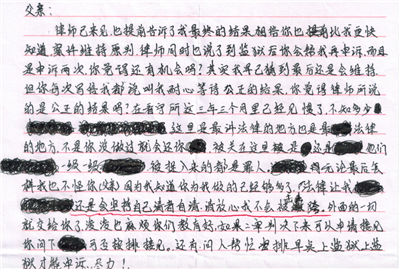 父亲:
律师已来见,也提前告诉了我最终的结果,相信你也提前比我更快
知道,案件维持原判,律师同时也说了到监狱后你会给我再申诉,而且
是申诉两次,你觉得还有机会吗?其实我早已猜到最后还是会维持,
但你每次写信我都说叫我耐心等待公正的结果,你觉得律师所说
的是公正的结果吗?在看守所这三年三个月里已经见惯了,不知多少
这里是最讲法律的地方也是最 法律
的地方,不是你没做过就会还你 被关在这里被 是 他们
一级一级 被投入来的都是罪人, 无论最后怎
料我也不怪你(父亲)因为我知道你为我做的已经够多了,法律让我
还是会坚持自己清者自清,请放心我不会被 外面的一切
就交给你了,凌凌也麻烦你们教育好,如果二审判决下来可以申请接见
你问下 可否安排接见,还有,问人帮忙安排早点上监狱,上监
狱才能申诉,尽力!